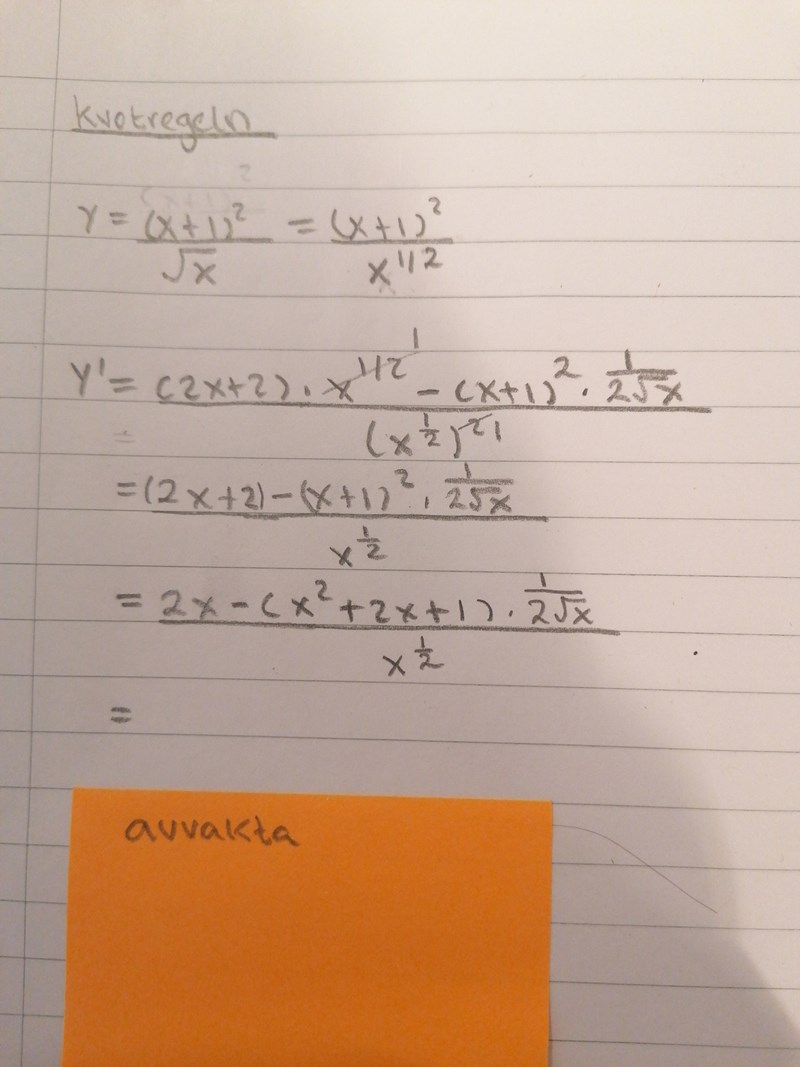 Kvotregeln
Y = (x+1)² / √x = (x+1)² / x^1/2
Y' = ((2x+2) · x^1/2 1 - (x+1)² · 1/(2√x)) / (x^½)^2 1
=
= ((2x+2) - (x+1)² · 1/(2√x)) / x^½
= (2x - (x² + 2x + 1) · 1/(2√x)) / x^½
=
avvakta